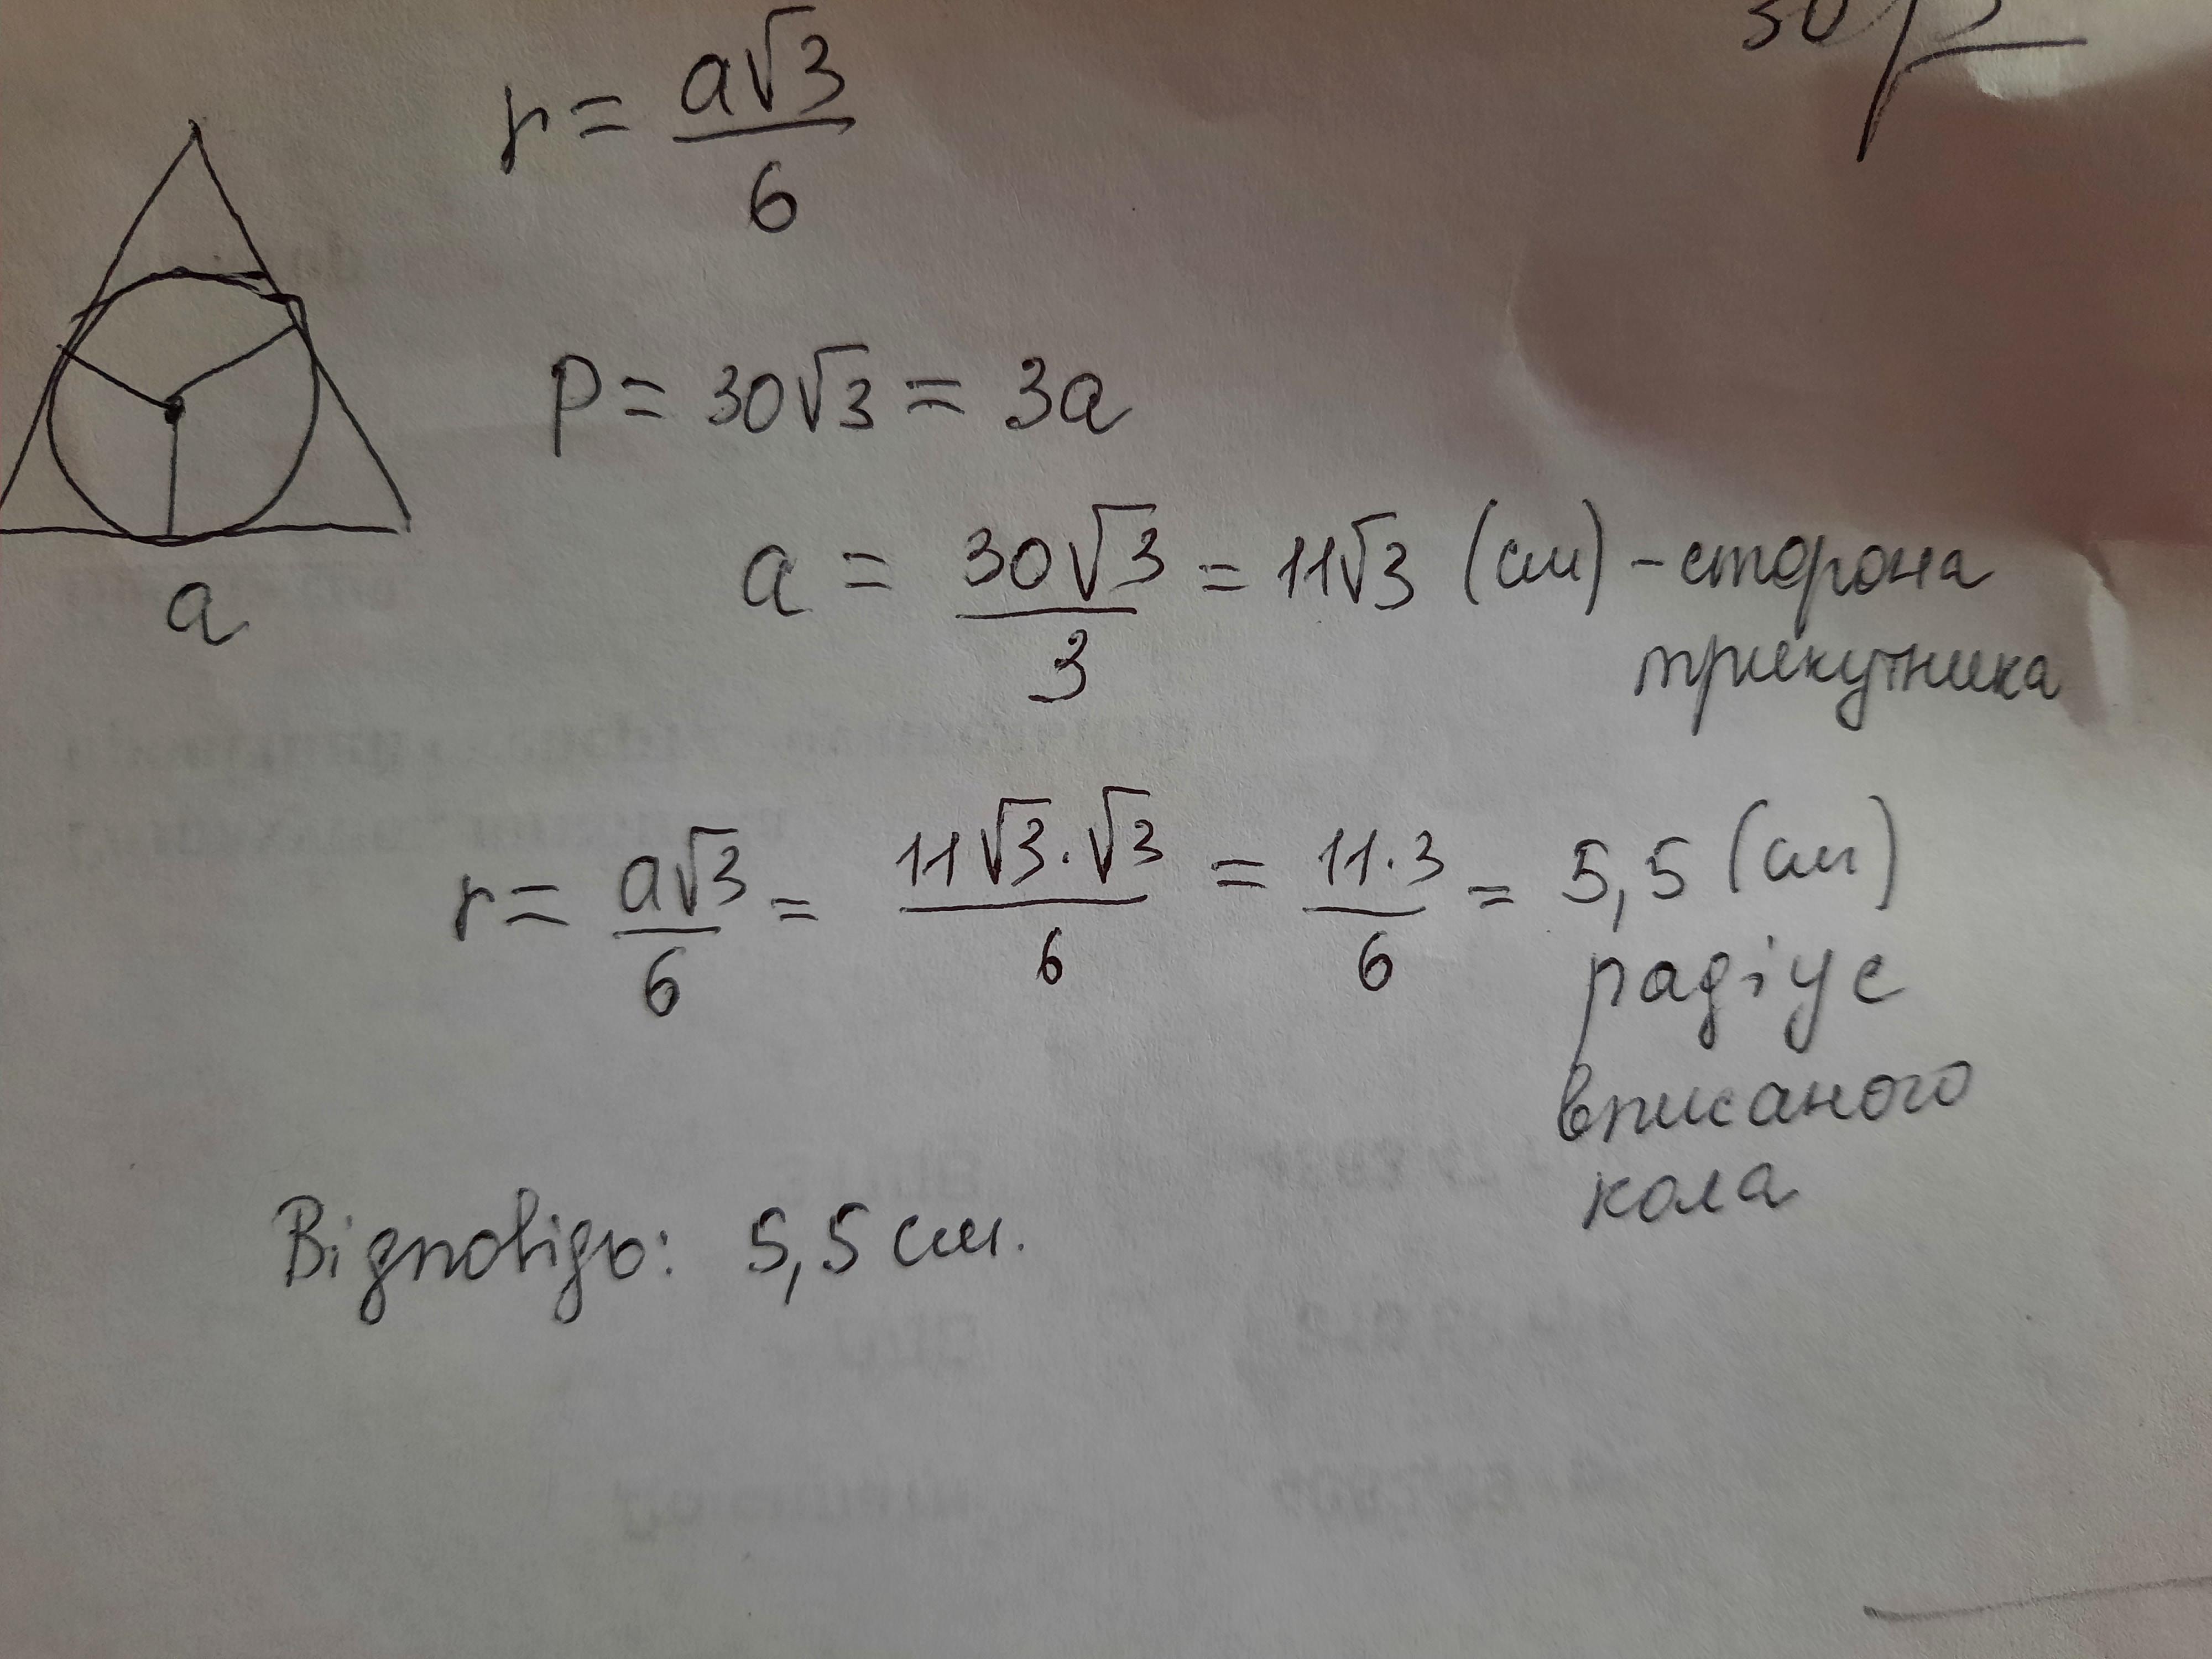 r = a√3/6
P = 30√3 = 3a
a = 30√3/3 = 11√3 (см) - сторона
трикутника
r = a√3/6 = 11√3·√3/6 = 11·3/6 = 5,5 (см)
радіус
вписаного
кола
Відповідь: 5,5 см.
a